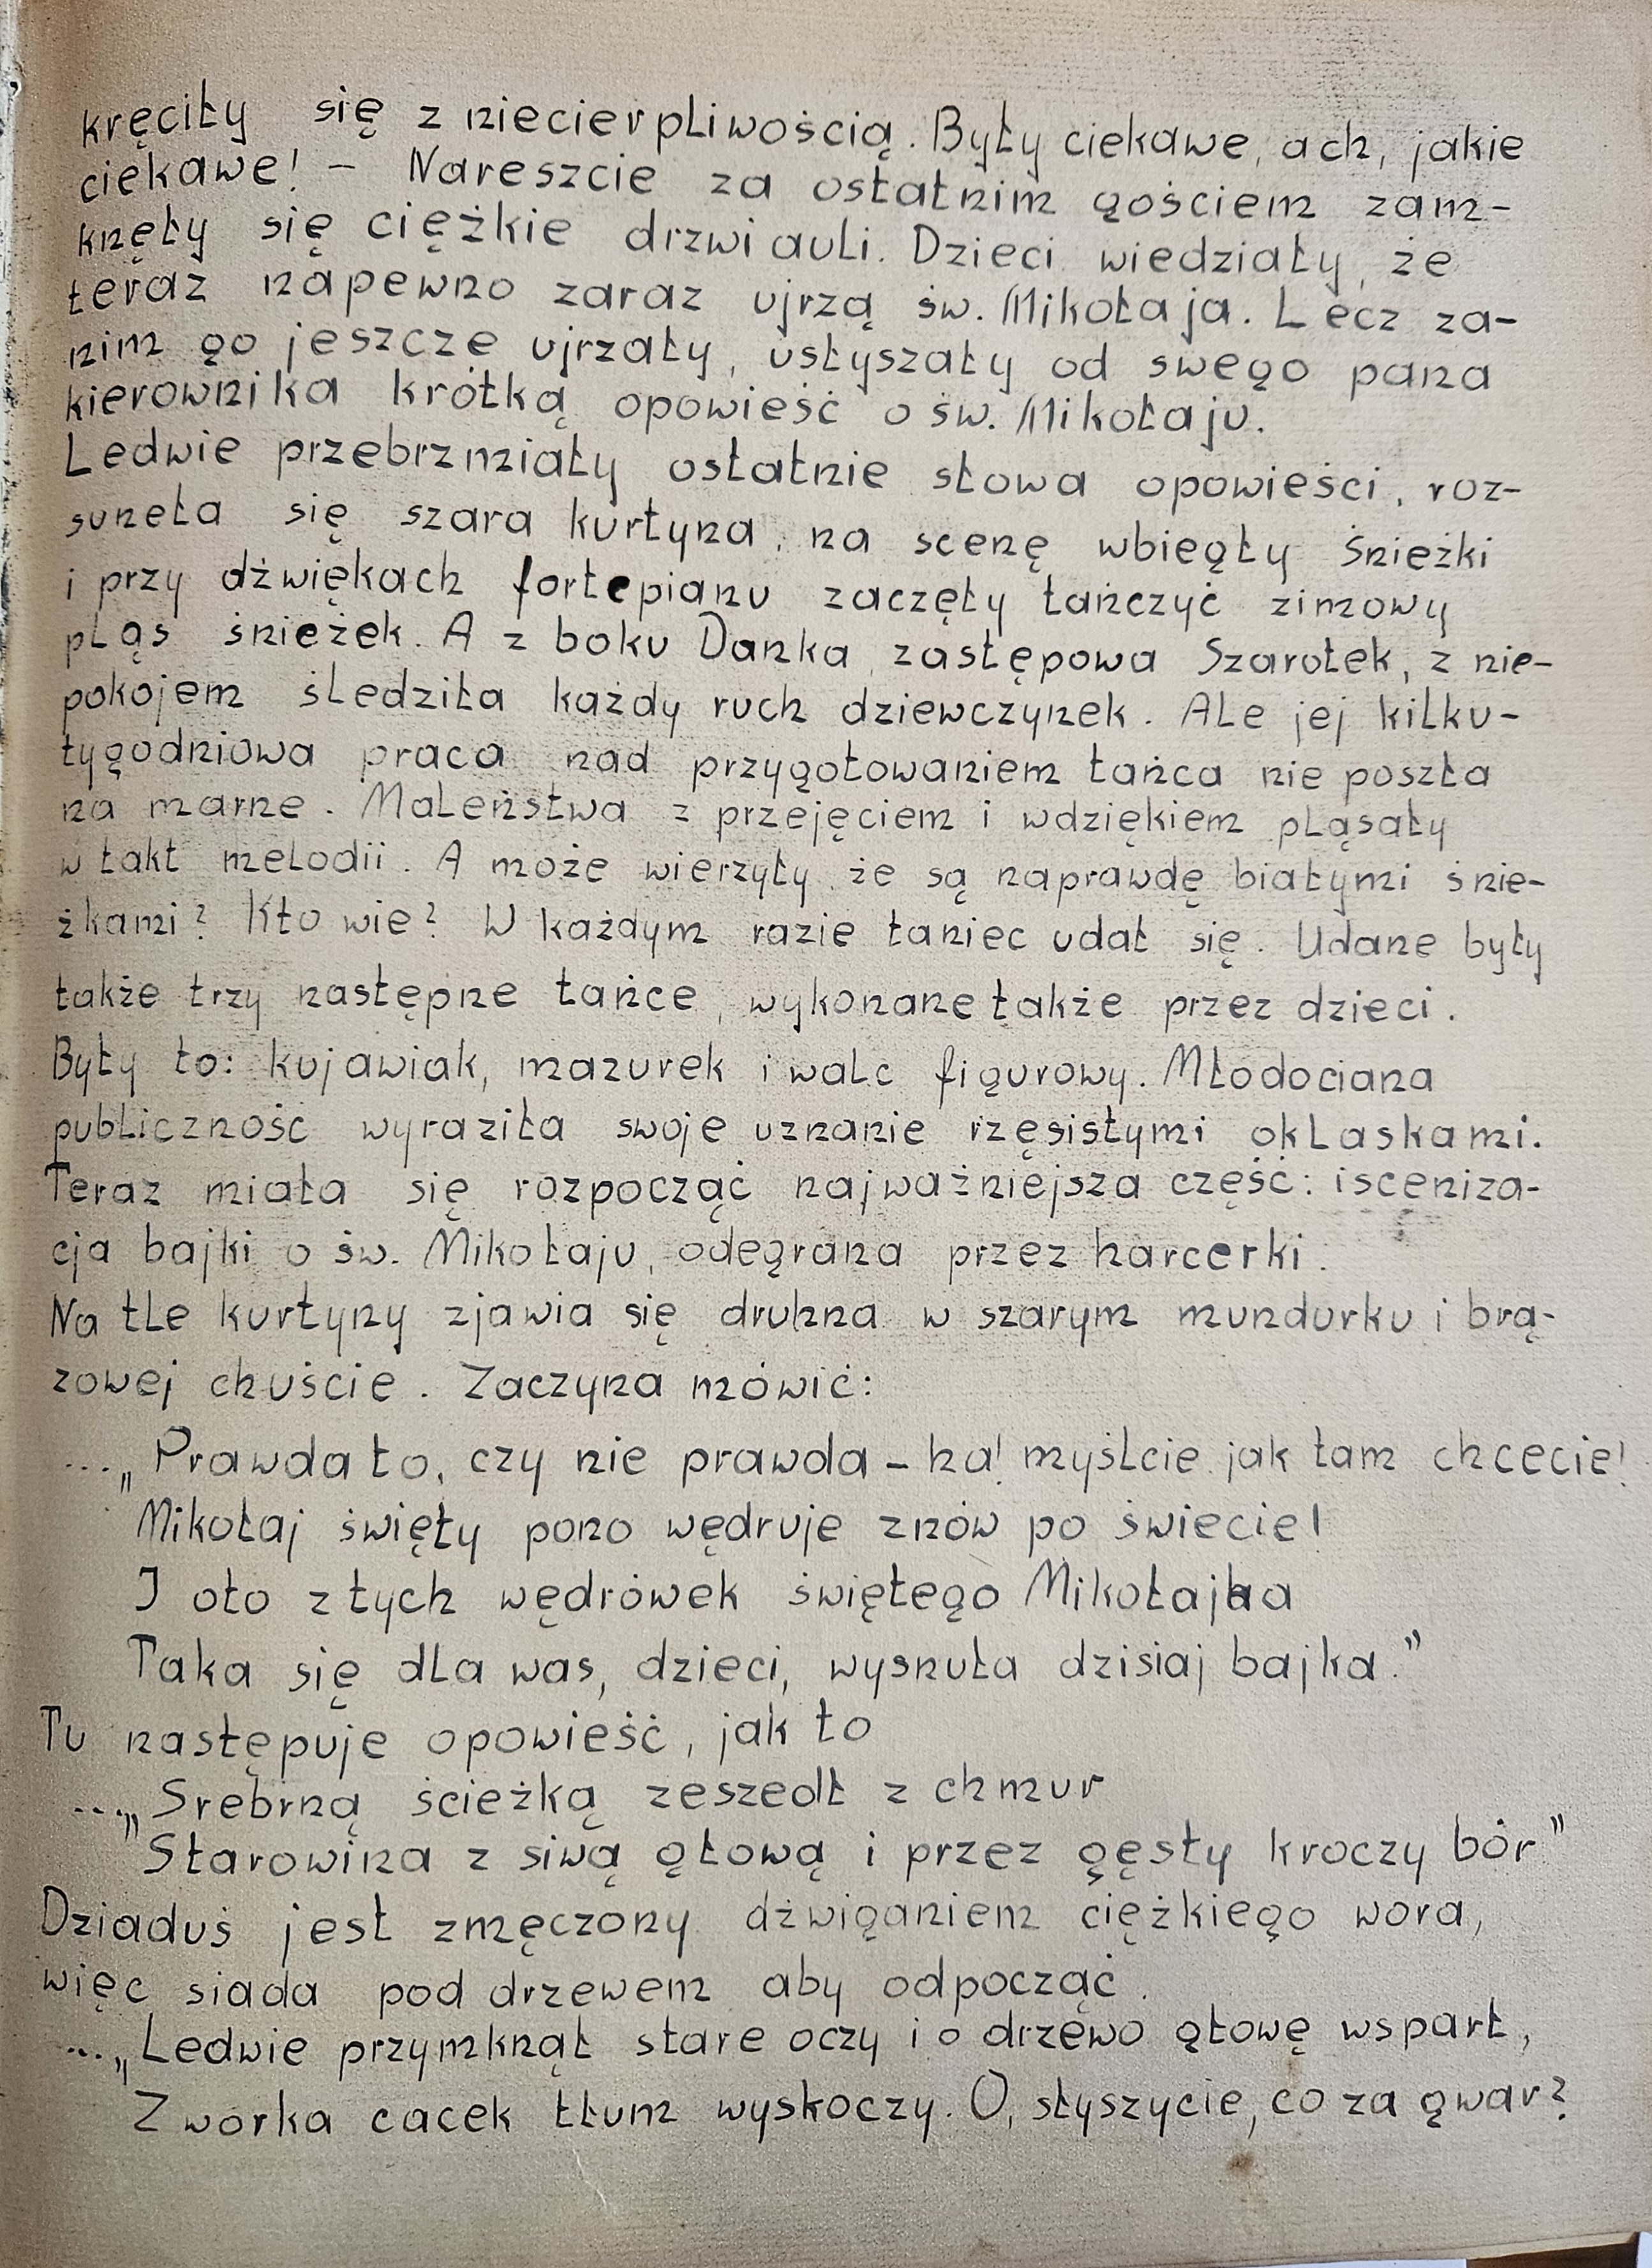 kręciły się z niecierpliwością. Były ciekawe, ach, jakie
ciekawe! – Nareszcie za ostatnim gościem zam-
knęły się ciężkie drzwi auli. Dzieci wiedziały, że
teraz napewno zaraz ujrzą św. Mikołaja. Lecz za-
nim go jeszcze ujrzały, usłyszały od swego pana
kierownika krótką opowieść o św. Mikołaju.
Ledwie przebrzmiały ostatnie słowa opowieści, roz-
suneła się szara kurtyna, na scenę wbiegły śnieżki
i przy dźwiękach fortepianu zaczęły tańczyć zimowy
pląs śnieżek. A z boku Danka, zastępowa Szarotek, z nie-
pokojem śledziła każdy ruch dziewczynek. Ale jej kilku-
tygodniowa praca nad przygotowaniem tańca nie poszła
na marne. Maleństwa z przejęciem i wdziękiem pląsały
w takt melodii. A może wierzyły, że są naprawdę białymi śnie-
żkami? Kto wie? W każdym razie taniec udał się. Udane były
także trzy następne tańce, wykonane także przez dzieci.
Były to: kujawiak, mazurek i walc figurowy. Młodociana
publiczność wyraziła swoje uznanie rzęsistymi oklaskami.
Teraz miała się rozpocząć najważniejsza część: isceniza-
cja bajki o św. Mikołaju, odegrana przez harcerki.
Na tle kurtyny zjawia się druhna w szarym mundurku i brą-
zowej chuście. Zaczyna mówić:
..." Prawda to, czy nie prawda – ha! myślcie jak tam chcecie!
"Mikołaj święty pono wędruje znów po świecie!
I oto z tych wędrówek świętego Mikołajka
Taka się dla was, dzieci, wysnuła dzisiaj bajka."
Tu następuje opowieść, jak to
...„Srebrną ścieżką zeszedł z chmur
"Starowina z siwą głową i przez gęsty kroczy bór"
Dziaduś jest zmęczony dźwiganiem ciężkiego wora,
więc siada pod drzewem aby odpocząć.
...„Ledwie przymknął stare oczy i o drzewo głowę wsparł,
Z worka cacek tłum wyskoczy. O, słyszycie, co za gwar?